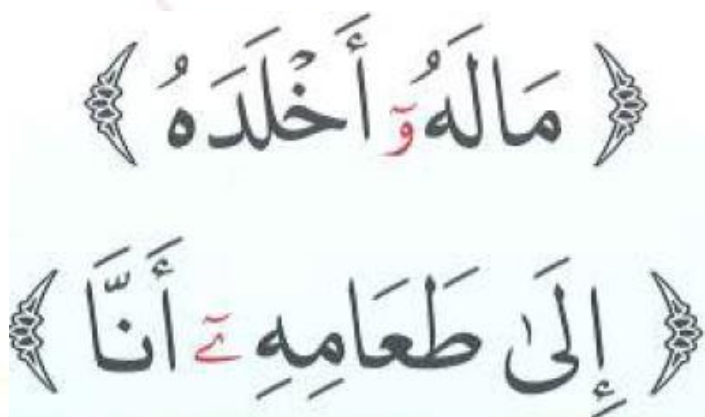 ﴿ مَالَهُۥٓ أَخْلَدَهُ ﴾
﴿ إِلَىٰ طَعَامِهِۦٓ أَنَّا ﴾